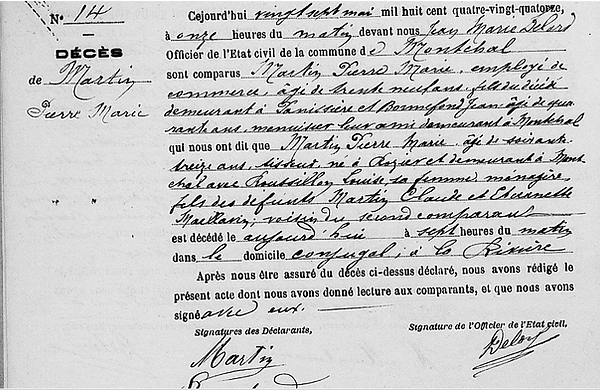 N° 14
DÉCÈS
de Martin
Pierre Marie
Cejourd'hui vingt sept mai mil huit cent quatre-vingt-quatorze,
à onze heures du matin devant nous Jean Marie
Officier de l'Etat civil de la commune de Montchal
sont comparus Martin Pierre Marie, employé de
commerce, âgé de trente neuf ans, fils du décédé
demeurant à Panissière et Bonnefond Jean âgé de qua
rante ans, menuisier leur ami demeurant à Montchal
qui nous ont dit que Martin Pierre Marie, âgé de soixante
treize ans, tisseur, né à Rozier et demeurant à Mont
chal avec Roussillon Louise, sa femme ménagère,
fils des défunts Martin Claude et Etiennette
voisin du second comparant
est décédé le aujourd'hui à sept heures du matin
dans le domicile conjugal, à la Rivière
Après nous être assuré du décès ci-dessus déclaré, nous avons rédigé le
présent acte dont nous avons donné lecture aux comparants, et que nous avons
signé avec eux.
Signatures des Déclarants,
Signature de l'Officier de l'Etat civil,
Martin